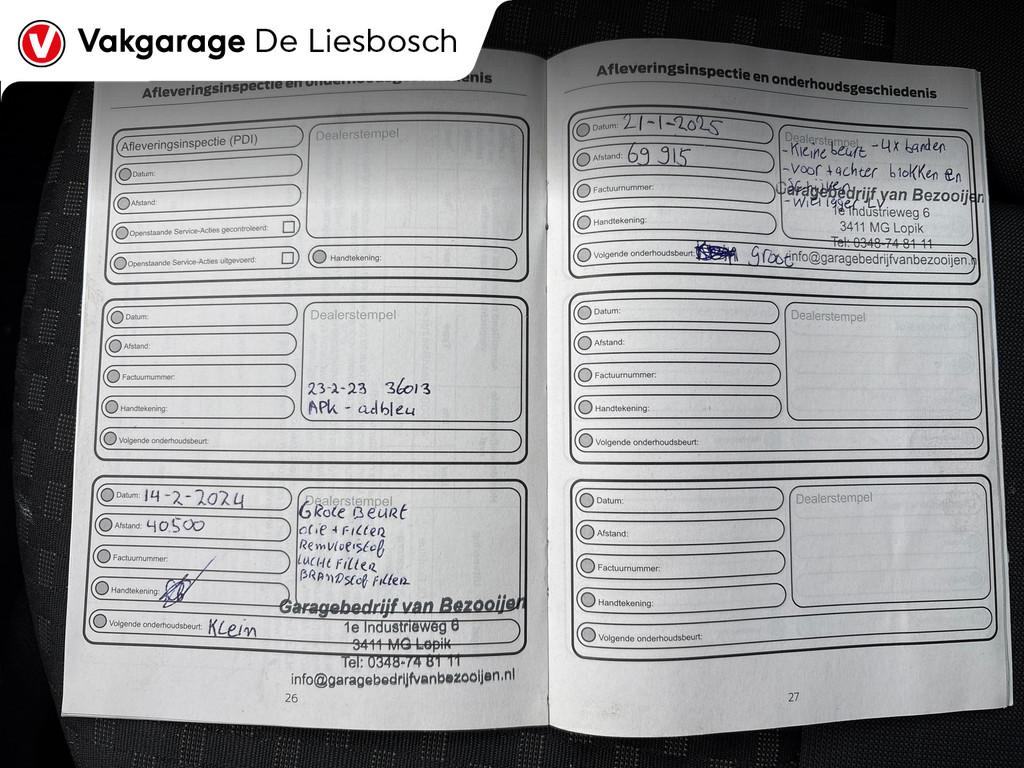 Vakgarage De Liesbosch
Afleveringsinspectie en onderhoudsgeschiedenis
Afleveringsinspectie (PDI)
Datum:
Afstand:
Openstaande Service-Acties gecontroleerd:
Openstaande Service-Acties uitgevoerd:
Dealerstempel
Handtekening:
Datum:
Afstand:
Factuurnummer:
Handtekening:
Volgende onderhoudsbeurt:
Dealerstempel
23-2-23 36013
APK - adbleu
Datum: 14-2-2024
Afstand: 40500
Factuurnummer:
Handtekening:
Volgende onderhoudsbeurt: Klein
Dealerstempel
GROTE BEURT
olie + Filter
Remvloeistof
LUCHT FILTER
BRANDstof FILTER
Garagebedrijf van Bezooijen
1e Industrieweg 6
3411 MG Lopik
Tel: 0348-74 81 11
info@garagebedrijfvanbezooijen.nl
26
Afleveringsinspectie en onderhoudsgeschiedenis
Datum: 21-1-2025
Afstand: 69915
Factuurnummer:
Handtekening:
Volgende onderhoudsbeurt: groot
Dealerstempel
- Kleine beurt - 4x banden
- voor + achter blokken en
schijven
- wiellager LV
Garagebedrijf van Bezooijen
1e Industrieweg 6
3411 MG Lopik
Tel: 0348-74 81 11
info@garagebedrijfvanbezooijen.n
Datum:
Afstand:
Factuurnummer:
Handtekening:
Volgende onderhoudsbeurt:
Dealerstempel
Datum:
Afstand:
Factuurnummer:
Handtekening:
Volgende onderhoudsbeurt:
Dealerstempel
27